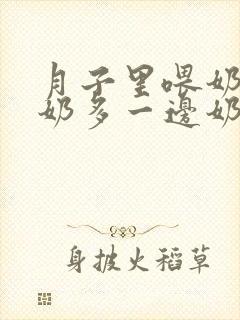 月子里喂奶
奶多一邊奶
身披火稻草